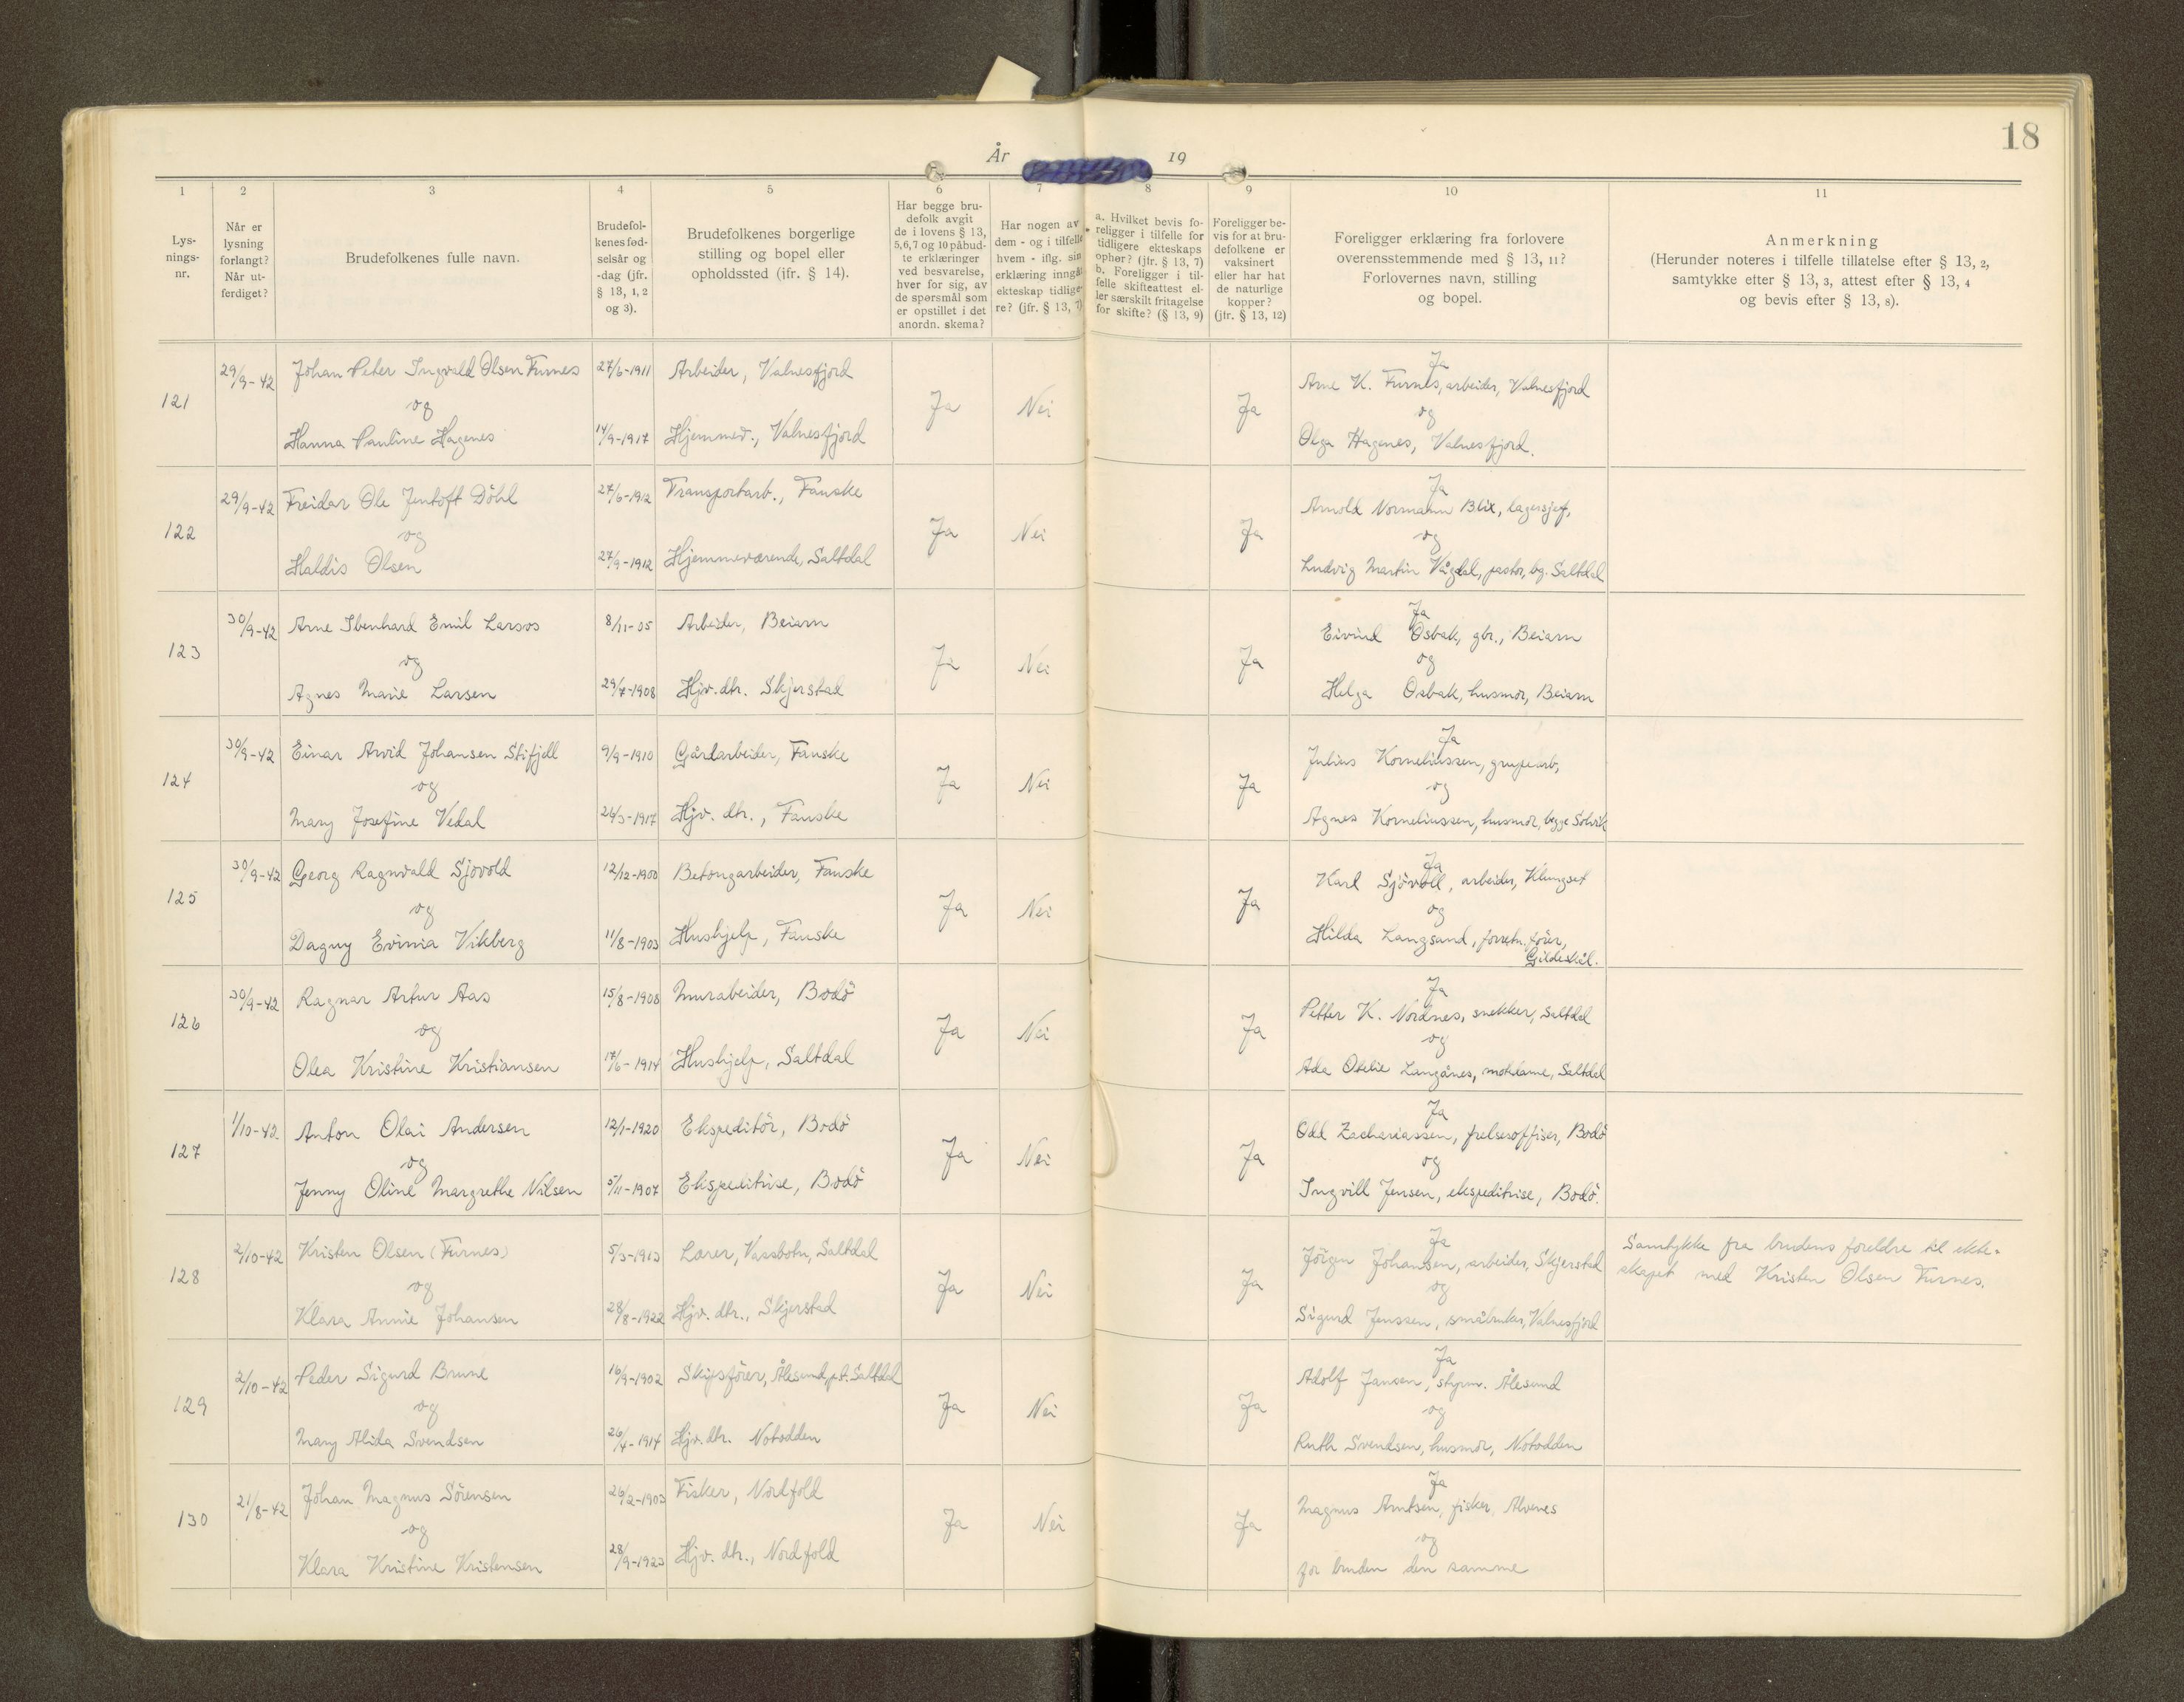 18
År 19
1 2 3 4 5 6 7 8 9 10 11
Lys-
nings-
nr.
Når er
lysning
forlangt?
Når ut-
ferdiget?
Brudefolkenes fulle navn.
Brudefol-
kenes fød-
selsår og
-dag (jfr.
§ 13, 1, 2
og 3).
Brudefolkenes borgerlige
stilling og bopel eller
opholdssted (jfr. § 14).
Har begge bru-
defolk avgit
de i lovens § 13,
5,6,7 og 10 påbud-
te erklæringer
ved besvarelse,
hver for sig, av
de spørsmål som
er opstillet i det
anordn. skema?
Har nogen av
dem - og i tilfelle
hvem - iflg. sin
erklæring inngåt
ekteskap tidlige-
re? (jfr. § 13, 7)
a. Hvilket bevis fo-
religger i tilfelle for
tidligere ekteskaps
ophør? (jfr. § 13, 7)
b. Foreligger i til-
felle skifteattest el-
ler særskilt fritagelse
for skifte? (§ 13, 9)
Foreligger be-
vis for at bru-
defolkene er
vaksinert
eller har hat
de naturlige
kopper?
(jfr. § 13, 12)
Foreligger erklæring fra forlovere
overensstemmende med § 13, 11?
Forlovernes navn, stilling
og bopel.
Anmerkning
(Herunder noteres i tilfelle tillatelse efter § 13, 2,
samtykke efter § 13, 3, attest efter § 13, 4
og bevis efter § 13, 8).
121 29/9-42 Johan Peter Ingvald Olsen Furnes 27/6-1911 Arbeider, Valnesfjord Ja Nei Ja Ja
Arne K. Furnes, arbeider, Valnesfjord
og og
Hanna Pauline Hagenes 14/9-1917 Hjemmev., Valnesfjord Olga Hagenes, Valnesfjord.
122 29/9-42 Freidar Ole Jentoft Döhl 27/6-1912 Transportarb., Fauske Ja Nei Ja Ja
Arnold Normann Blix, lagersjef,
og og
Haldis Olsen 27/9-1912 Hjemmeværende, Saltdal Ludvig Martin Vågdal, pastor, bg. Saltdal
123 30/9-42 Arne Ibenhard Emil Larsos 8/11-05 Arbeider, Beiarn Ja Nei Ja Ja
Eivind Osbak, gbr., Beiarn
og og
Agnes Marie Larsen 29/7-1908 Hjv. dtr. Skjerstad Helga Osbak, husmor, Beiarn
124 30/9-42 Einar Arvid Johansen Stifjell 9/9-1910 Gårdarbeider, Fauske Ja Nei Ja Ja
Julius Korneliussen, grupearb,
og og
Mary Josefine Vedal 26/3-1917 Hjv. dtr., Fauske Agnes Korneliussen, husmor, begge Solvik
125 30/9-42 Georg Ragnvald Sjovold 12/12-1900 Betongarbeider, Fauske Ja Nei Ja Ja
Karl Sjövoll, arbeider, Klungset
og og
Dagny Evinia Vikberg 11/8-1903 Hushjelp, Fauske Hilda Langsand, forretn. förer,
Gildeskål.
126 30/9-42 Ragnar Artur Aas 15/8-1908 Murabeider, Bodö Ja Nei Ja Ja
Petter K. Nordnes, snekker, Saltdal
og og
Olea Kristine Kristiansen 17/6-1914 Hushjelp, Saltdal Ada Otelie Langånes, motedame, Saltdal
127 1/10-42. Anton Olai Andersen 12/1-1920 Ekspeditör, Bodö Ja Nei Ja Ja
Odd Zachariassen, frelsesoffiser, Bodö
og og
Jenny Oline Margrethe Nilsen 5/11-1907 Ekspeditrise, Bodö Ingvill Jensen, ekspeditrise, Bodö.
128 2/10-42 Kristen Olsen (Furnes) 5/3-1913 Lærer, Vassbotn, Saltdal Ja Nei Ja Ja
Jörgen Johansen, arbeider, Skjerstad Samtykke fra brudens foreldre til ekte-
skapet med Kristen Olsen Furnes.
og og
Klara Annie Johansen 28/8-1922 Hjv. dtr., Skjerstad Sigurd Jenssen, småbruker, Valnesfjord
129 2/10-42 Peder Sigurd Brune 16/9-1902 Skipsförer, Ålesund, p.t. Saltdal Ja Nei Ja Ja
Adolf Jansen, styrm. Ålesund
og og
Mary Alida Svendsen 26/4-1914 Hjv. dtr. Notodden Ruth Svendsen, husmor, Notodden
130 21/8-42 Johan Magnus Sörensen 26/2-1903 Fisker, Nordfold Ja Nei Ja Ja
Magnus Arntsen, fisker, Alvenes
og og
Klara Kristine Kristensen 28/9-1923 Hjv. dtr., Nordfold for bruden den samme